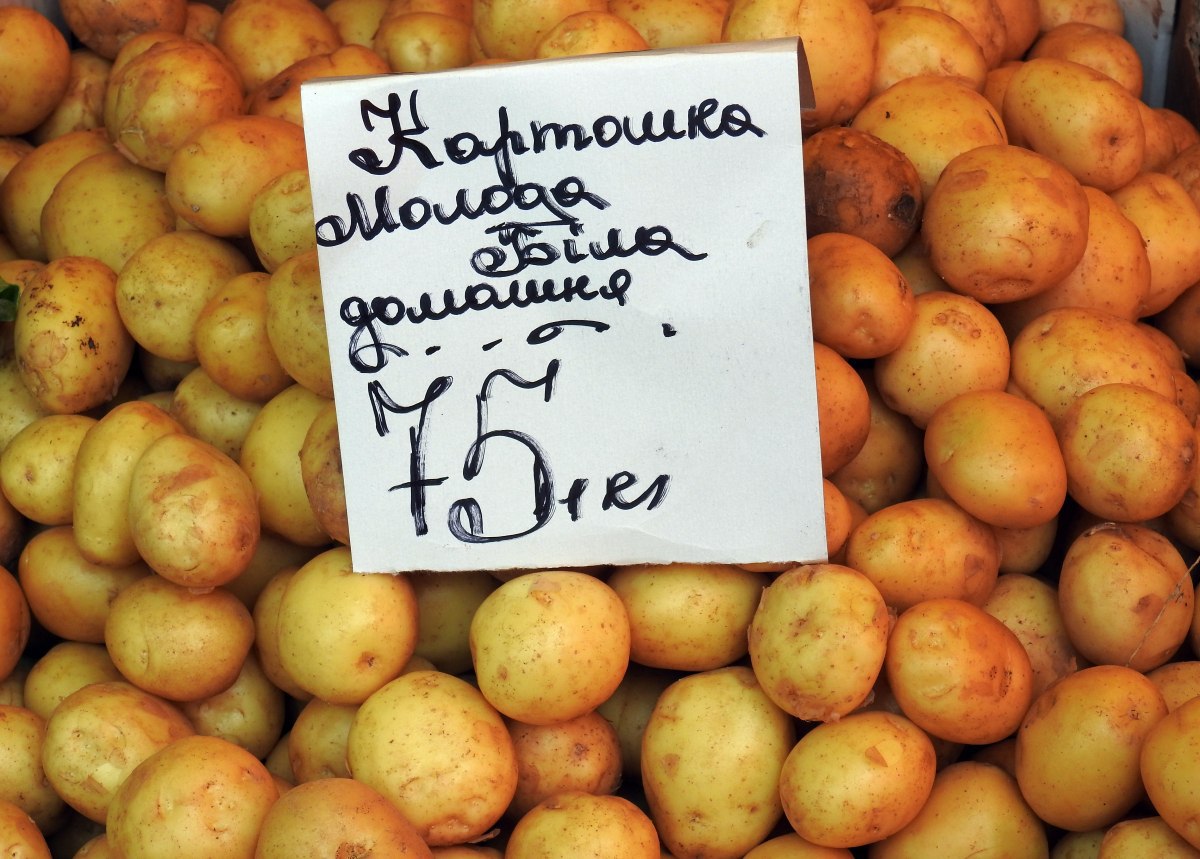 Картошка
Молода
Біла
домашня
75 1 кг